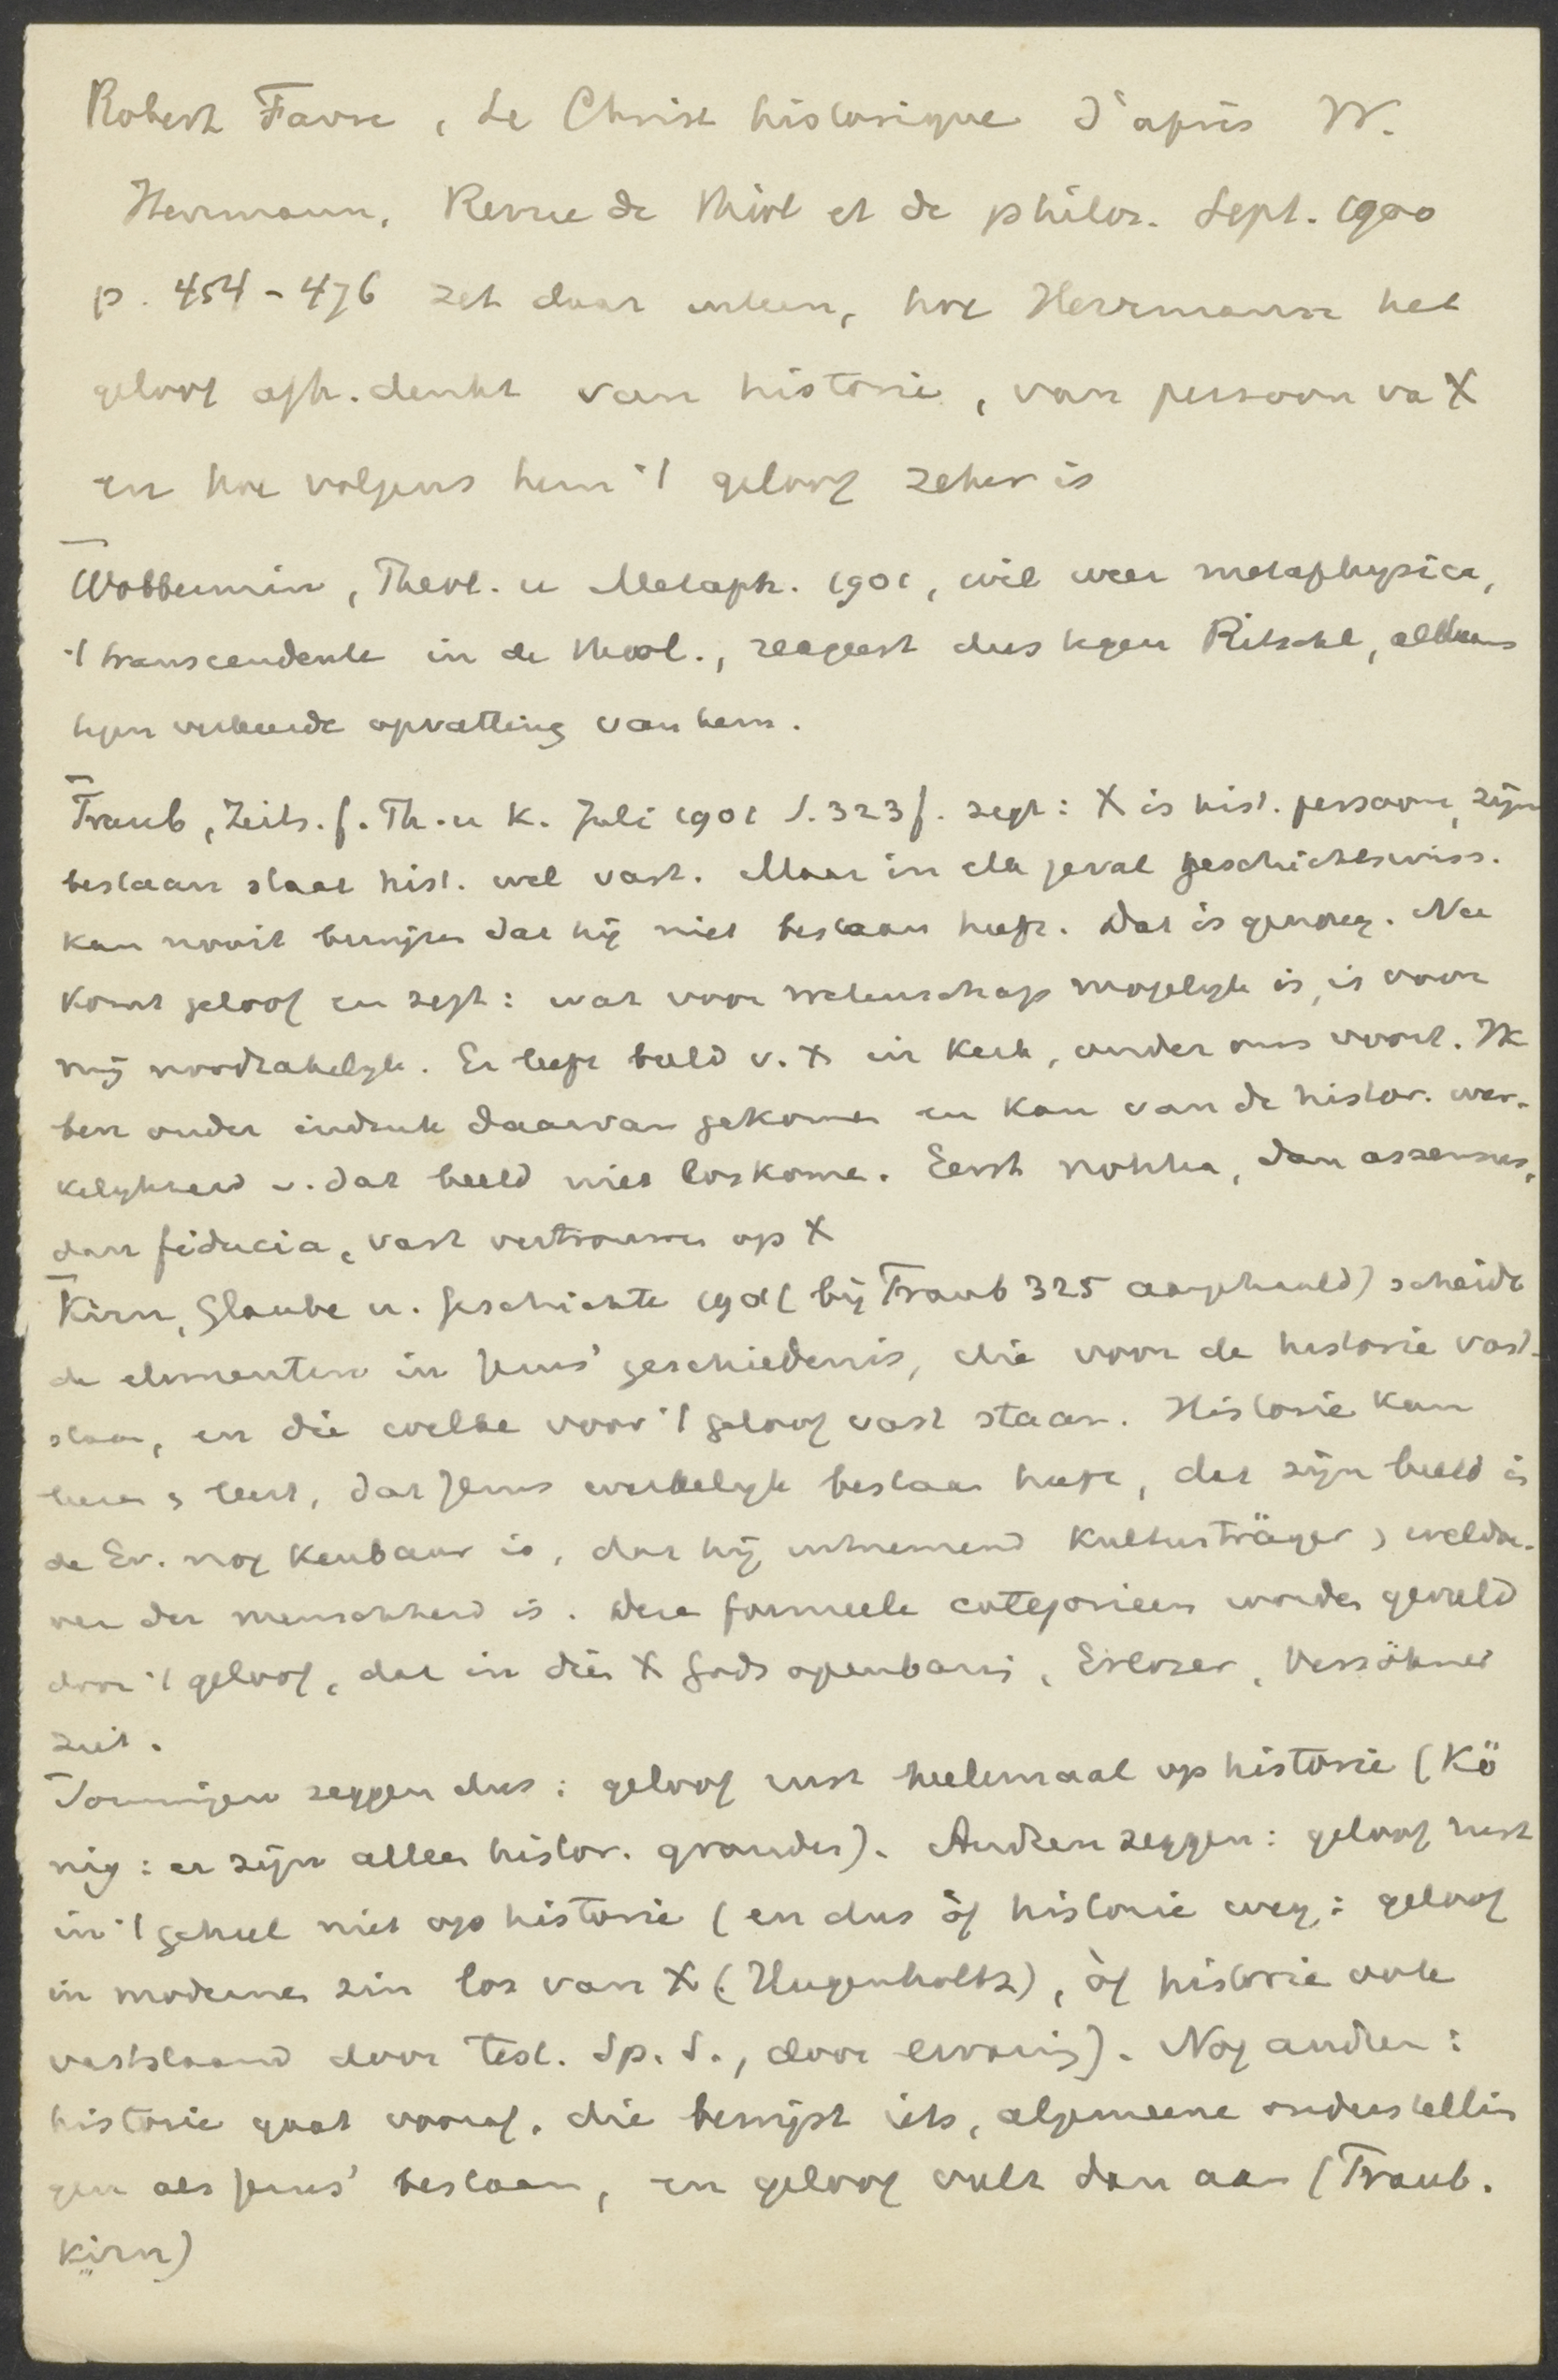 Robert Favre, Le Christ historique d'après W.
Herrmann, Revue de théol et de philos. Sept. 1900
p. 454-476 zet daar uiteen, hoe Herrmann het
geloof afh. denkt van historie, van persoon va X
en hoe volgens hem 't geloof zeker is
Wobbermin, Theol. u Metaph. 1901, wil weer metaphysica,
't transcendente in de theol., reageert dus tegen Ritschl, althans
tegen verkeerde opvatting van hem.
Traub, Zeits. f. Th. u K. Juli 1901 S. 323 f. zegt: X is hist. persoon, zijn
bestaan staat hist. wel vast. Maar in elk geval geschichtswiss.
kan nooit bewijzen dat hij niet bestaan heeft. Dat is genoeg. Nu
komt geloof en zegt: wat voor wetenschap mogelijk is, is voor
mij noodzakelijk. Er leeft beeld v. X in kerk, onder ons voort. Ik
ben onder indruk daarvan gekomen en kan van de histor. wer-
kelijkheid v. dat beeld niet loskome. Eerst notitia, dan assensus,
dan fiducia, vast vertrouwen op X
Kirn, Glaube u. Geschichte 1901 (bij Traub 325 aangehaald) scheidt
de elementen in Jezus' geschiedenis, die voor de historie vast-
staan, en die welke voor 't geloof vast staan. Historie kan
leren & leert, dat Jezus werkelijk bestaan heeft, dat zijn beeld i
de Ev. nog kenbaar is, dat hij uitnemend Kultusträger, weldoe-
ner der menschheid is. Deze formeele categorieen worden gevuld
door 't geloof, dat in dien X Gods openbaring, Erlozer, Versöhner
ziet.
Sommigen zeggen dus: geloof rust heelemaal op historie (Kö
nig: er zijn alleen histor. gronden). Andren zeggen: geloof rust
in 't geheel niet op historie (en dus òf historie weg: geloof
in modernen zin los van X (Hugenholtz), òf historie ook
vaststaand door test. Sp. S., door ervaring). Nog andren:
historie gaat vooraf, die bewijst iets, algemeene onderstellin
gen als Jezus' bestaan, en geloof vult dan aan (Traub.
Kirn)